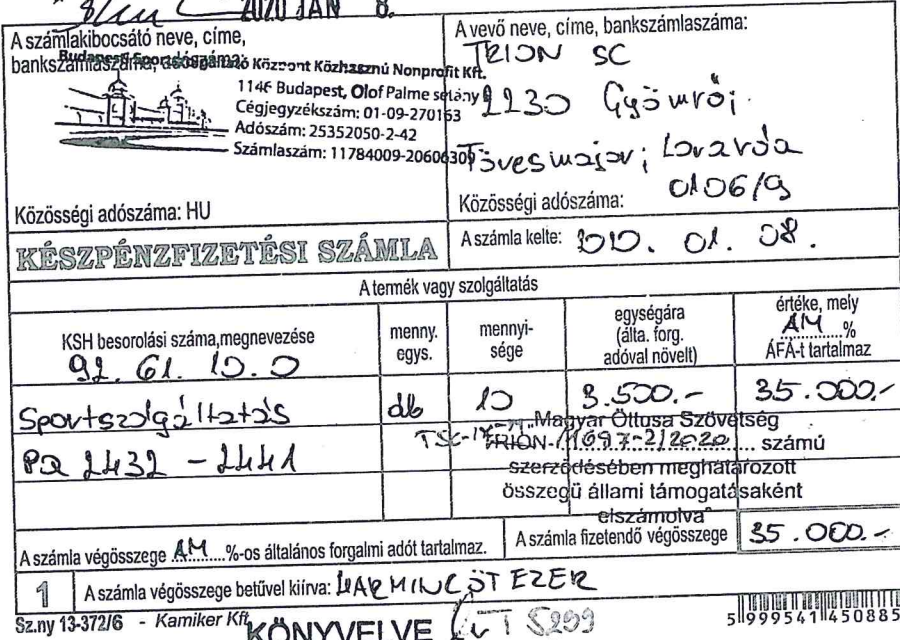 2020 JAN 8.
A számlakibocsátó neve, címe,
bankszámlaszáma, adóigazgatási száma:
Budapesti Sportszolgáltató Központ Közhasznú Nonprofit Kft.
1146 Budapest, Olof Palme sétány
Cégjegyzékszám: 01-09-270163
Adószám: 25352050-2-42
Számlaszám: 11784009-20606309
Közösségi adószáma: HU
A vevő neve, címe, bankszámlaszáma:
TRION SC
2230 Gyömrői
Tövesmajor; Lovarda
0106/9
Közösségi adószáma:
KÉSZPÉNZFIZETÉSI SZÁMLA
A számla kelte: 2020. 01. 08.
A termék vagy szolgáltatás
KSH besorolási száma,megnevezése
menny. egys.
mennyi-sége
egységára (álta. forg. adóval növelt)
értéke, mely AM % ÁFÁ-t tartalmaz
92. 61. 10. 0
Sportszolgáltatás db 10 3.500.- 35.000.-
PQ 2432 - 2441
„Magyar Öttusa Szövetség
TRION-/1697-2/2020 számú
szerződésében meghatározott
összegű állami támogatásaként
elszámolva"
A számla végösszege AM %-os általános forgalmi adót tartalmaz.
A számla fizetendő végösszege 35.000.-
1 A számla végösszege betűvel kiírva: HARMINCÖTEZER
Sz.ny 13-372/6 - Kamiker Kft
KÖNYVELVE
5 999541 450885